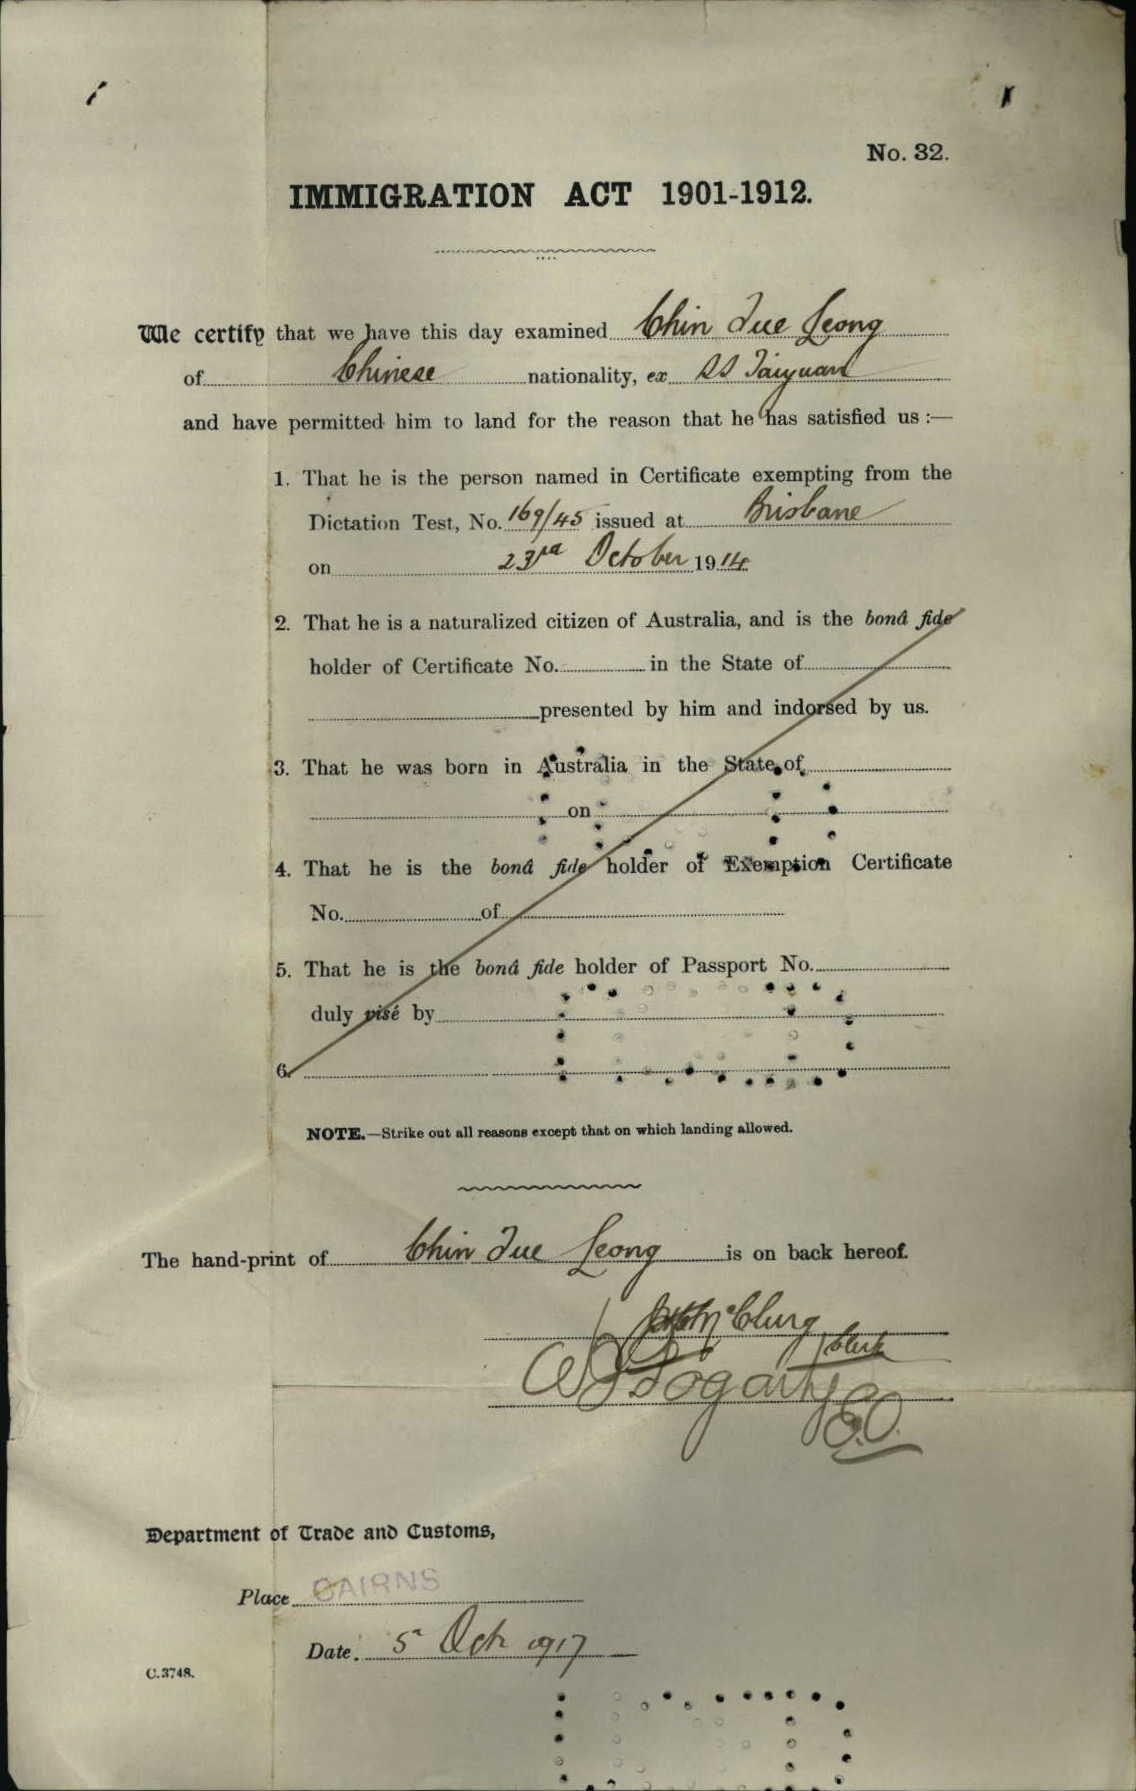 No. 32.
IMMIGRATION ACT 1901-1912.
We certify that we have this day examined Chin Jue Leong
of Chinese nationality, ex SS Taiyuan
and have permitted him to land for the reason that he has satisfied us :—
1. That he is the person named in Certificate exempting from the
Dictation Test, No. 169/45 issued at Brisbane
on 23rd October 1914
2. That he is a naturalized citizen of Australia, and is the bonâ fide
holder of Certificate No. in the State of
presented by him and indorsed by us.
3. That he was born in Australia in the State of
on
4. That he is the bonâ fide holder of Exemption Certificate
No. of
5. That he is the bonâ fide holder of Passport No.
duly visé by
6.
NOTE.—Strike out all reasons except that on which landing allowed.
The hand-print of Chin Jue Leong is on back hereof.
McClurg
Clerk
Fogarty
E.O.
Department of Trade and Customs,
Place CAIRNS
Date. 5 Oct 1917
C.3748.